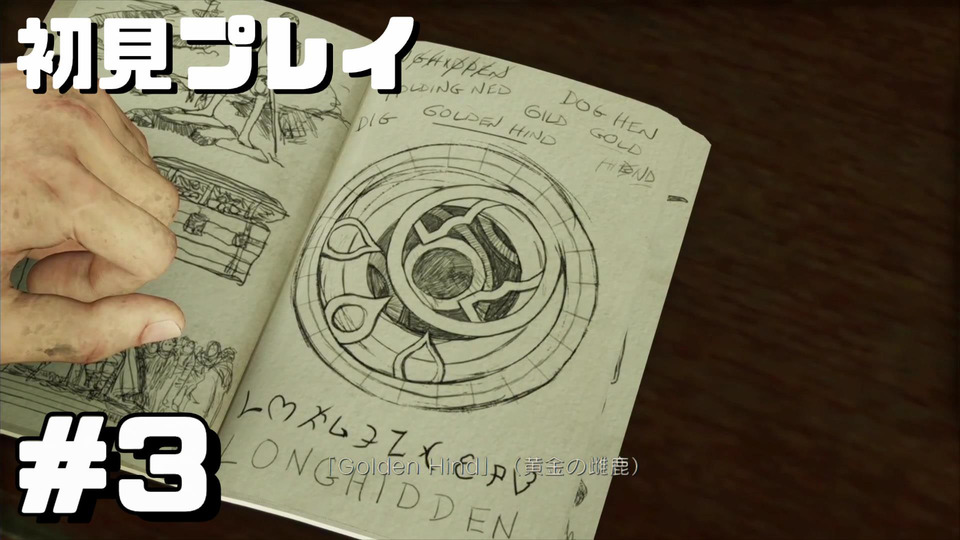 初見プレイ
HOLDING NED
DOG HEN
DIG
GOLDEN HIND
GILD
GOLD
LONGHIDDEN
「Golden Hind」（黄金の雌鹿）
#3